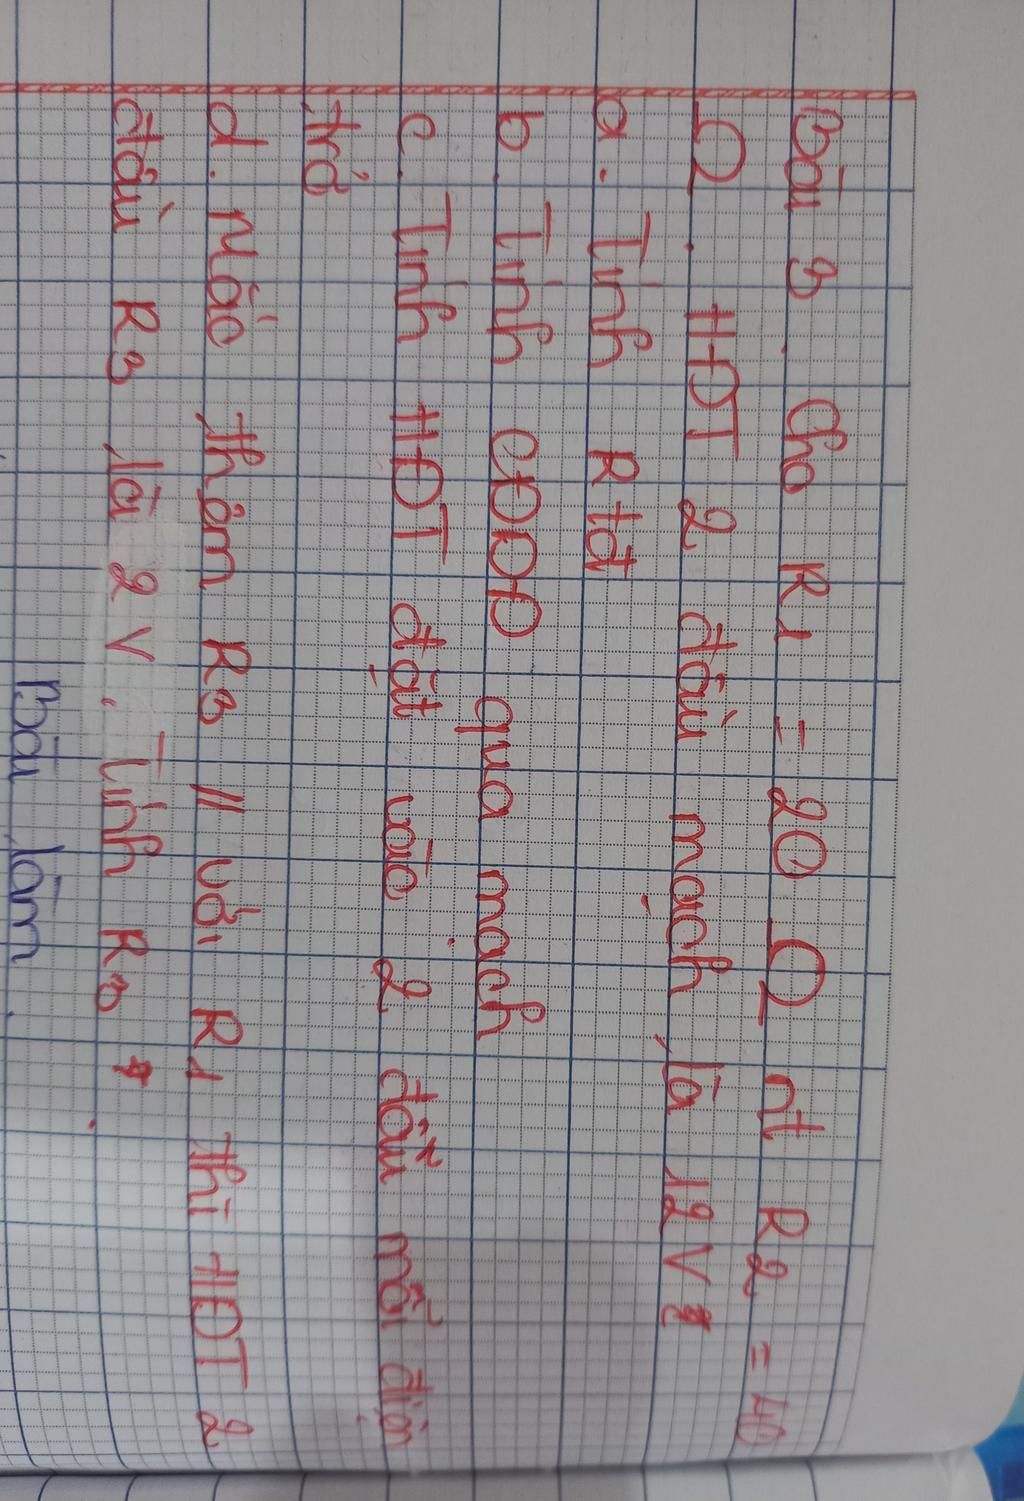 Bài 3. Cho R1 = 20 Ω nt R2 = 40
Ω. HĐT 2 đầu mạch là 12V
a. Tính R tđ
b. Tính CĐDĐ qua mạch
c. Tính HĐT đặt vào 2 đầu mỗi điện
trở
d. Mắc thêm R3 // với R1 thì HĐT 2
đầu R3 là 2 V. Tính R3
Bài làm